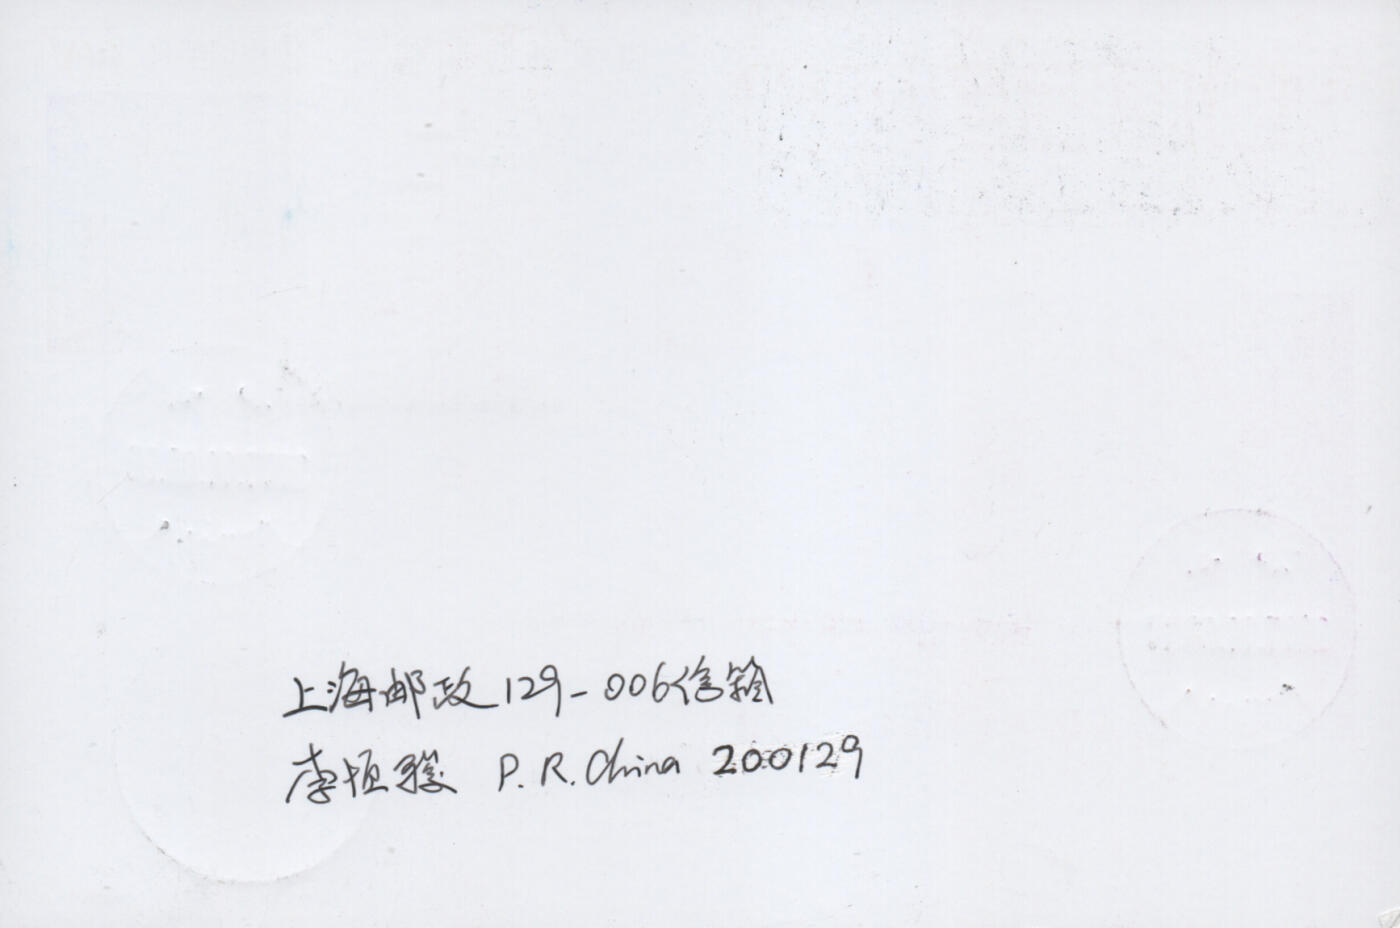 上海邮政129-006信箱
李恒骏 P.R.China 200129